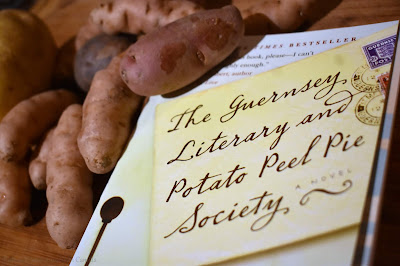 TIMES BESTSELLER
book, please—I can't
enough."
author
The Guernsey
Literary and
Potato Peel Pie
Society
A NOVEL